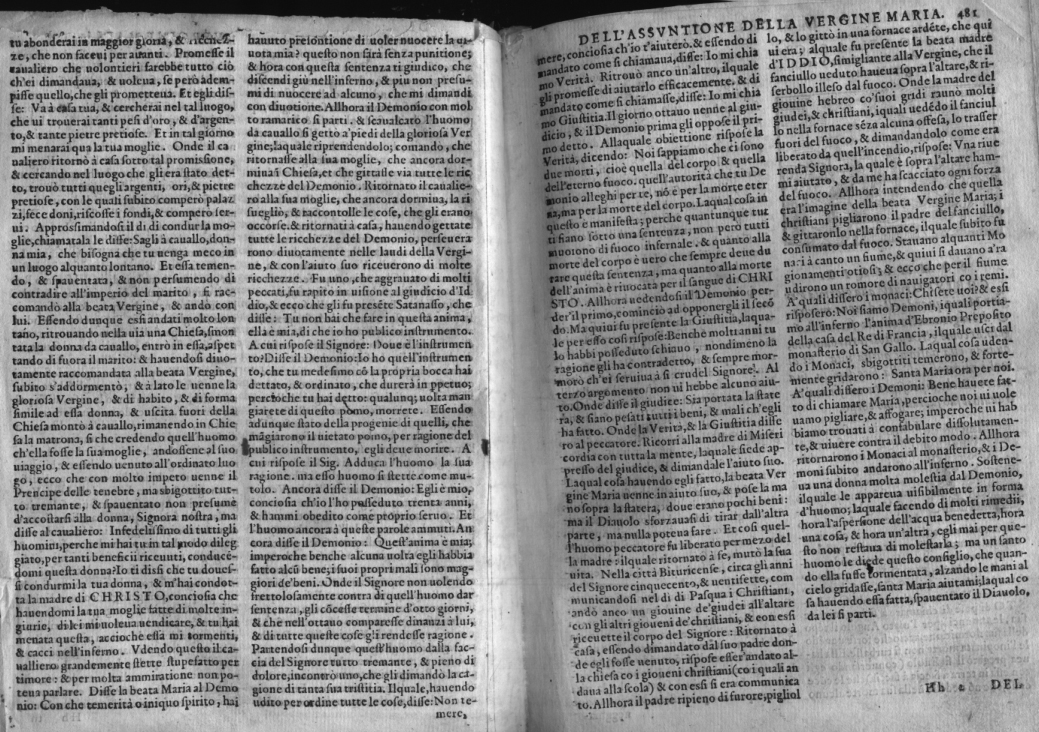 tu abonderai in maggior gloria, & ricchez-
ze, che non faceui per auanti. Promesse il
caualiero che uolontieri farebbe tutto ciò
ch'ei dimandaua, & uolcua, se però adem-
pisse quello, che gli prometteua. Et egli dis-
se: Va à casa tua, & cercherai nel tal luogo,
che ui trouerai tanti pesi d'oro, & d'argen-
to, & tante pietre pretiose. Et in tal giorno
mi menarai qua la tua moglie. Onde il ca
naliero ritornò à casa sotto tal promissione,
& cercando nel luogo che gli era stato det-
to, trouò tutti quegli argenti, ori, & pietre
pretiose, con le quali subito comperò palaz
zi, fece doni, riscosse i fondi, & comperò ser-
ui. Approssimandosi il dì di condur la mo-
glie, chiamatala le disse: Sagli à cauallo, don-
na mia, che bisogna che tu uenga meco in
un luogo alquanto lontano. Et essa temen-
do, & spauentata, & non persumendo di
contradire all'imperio del marito, si rac-
comandò alla beata Vergine, & andò con
lui. Essendo dunque essi andati molto lon-
tano, ritrouando nella uia una Chiesa, smon
tata la donna da cauallo, entrò in essa, aspet
tando di fuora il marito: & hauendosi diuo-
tamente raccomandata alla beata Vergine,
subito s'addormentò, & à lato le uenne la
gloriosa Vergine, & di habito, & di forma
simile ad essa donna, & uscita fuori della
Chiesa montò à cauallo, rimanendo in Chie
sa la matrona, si che credendo quell'huomo
ch'ella fosse la sua moglie, andossene al suo
uiaggio, & essendo uenuto all'ordinato luo
go, ecco che con molto impeto uenne il
Prencipe delle tenebre, ma sbigottito tut-
to tremante, & spauentato non presume
d'accostarsi alla donna, Signora nostra, ma
disse al caualiero: Infedelissimo di tutti gli
huomini, perche mi hai tu in tal modo dileg
giato, per tanti beneficii riceuuti, conducē-
domi questa donna? Io ti dissi che tu doues-
si condurmi la tua donna, & m'hai condot-
ta la madre di CHRISTO, conciosia che
hauendomi la tua moglie fatte di molte in-
giurie, di lei mi uoleua uendicare, & tu hai
menata questa, acciochè essa mi tormenti,
& cacci nell'inferno. Vdendo questo il ca-
ualliero grandemente stette stupefatto per
timore: & per molta ammiratione non po-
teua parlare. Disse la beata Maria al Demo
nio: Con che temerità o iniquo spirito, hai
hauuto presontione di uoler nuocere la di
uota mia? questo non sarà senza punitione;
& hora con questa sentenza ti giudico, che
discendi giù nell'inferno, & piu non presu-
mi di nuocere ad alcuno, che mi dimandi
con diuotione. Allhora il Demonio con mol
to ramarico si partì. & scaualcato l'huomo
da cauallo si gettò a'piedi della gloriosa Ver
gine; laquale riprendendolo; comandò, che
ritornasse alla sua moglie, che ancora dor-
mina ī Chiesa, et che gittasse via tutte le ric
chezze del Demonio. Ritornato il caualie-
ro alla sua moglie, che ancora dormina, la ri
suegliò, & raccontolle le cose, che gli erano
occorse. & ritornati à casa, hauendo gettate
tutte le ricchezze del Demonio, perseuera
rono diuotamente nelle laudi della Vergi-
ne, & con l'aiuto suo riceuerono di molte
ricchezze. Fu uno, che aggrauato di molti
peccati, fu rapito in uisione al giudicio d'Id
dio, & ecco che gli fu presēte Satanasso, che
disse: Tu non hai che fare in questa anima,
ella è mia, di che io ho publico instrumento.
A cui rispose il Signore: Doue è l'instrumen
to? Disse il Demonio: Io ho quell'instrumen
to, che tu medesimo cō la propria bocca hai
dettato, & ordinato, che durerà in ppetuo;
percioche tu hai detto: qualunq; uolta man
giarete di questo pomo, morrete. Essendo
adunque stato della progenie di quelli, che
māgiarono il uietato pomo, per ragione del
publico instrumento, egli deue morire. A
cui rispose il Sig. Adduca l'huomo la sua
ragione. ma esso huomo si stette come mu-
tolo. Ancora disse il Demonio: Egli è mio,
conciosia ch'io l'ho posseduto trenta anni,
& hammi obedito come proprio seruo. Et
l'huomo ancora à queste parole ammutì. An
cora disse il Demonio: Quest'anima è mia;
imperoche benche alcuna uolta egli habbia
fatto alcū bene; i suoi propri mali sono mag-
giori de'beni. Onde il Signore non uolendo
frettolosamente contra di quell'huomo dar
sentenza, gli cōcesse termine d'otto giorni,
& che nell'ottauo comparesse dinanzi à lui,
& di tutte queste cose gli rendesse ragione.
Partendosi dunque quest'huomo dalla fac-
cia del Signore tutto tremante, & pieno di
dolore, incontrò uno, che gli dimandò la ca-
gione di tanta sua tristitia. Il quale, hauendo
udito per ordine tutte le cose, disse: Non te-
mere,
DELL'ASSVNTIONE DELLA VERGINE MARIA. 481
mere, conciosia ch'io t'aiuterò. & essendo di
mandato come si chiamaua, disse: Io mi chia
mo Verità. Ritrouò anco un'altro, il quale
gli promesse di aiutarlo efficacemente, & di
mandato come si chiamasse, disse: Io mi chia
mo Giustitia. Il giorno ottauo uenne al giu-
dicio, & il Demonio prima gli oppose il pri-
mo detto. Alla quale obiettione rispose la
Verità, dicendo: Noi sappiamo che ci sono
due morti, cioè quella del corpo & quella
dell'eterno fuoco. quell'autorità che tu De
monio alleghi per te, nō è per la morte eter
na, ma per la morte del corpo. Laqual cosa in
questo è manifesta; perche quantunque tut
ti siano sotto una sentenza, non però tutti
muoiono di fuoco infernale. & quanto alla
morte del corpo è uero che sempre deue du
rare questa sentenza, ma quanto alla morte
dell'anima è riuocata per il sangue di CHRI
STO. Allhora uedendosi il Demonio per-
der'il primo, comincìo ad opponergli il secō
do. Ma quiui fu presente la Giustitia, laqua-
le per esso così rispose: Benchè molti anni tu
lo habbi posseduto schiauo, nondimeno la
ragione gli ha contradetto, & sempre mor-
morò ch'ei seruiua à sì crudel Signore. Al
terzo argomento non ui hebbe alcuno aiu-
to. Onde disse il giudice: Sia portata la state
ra, & siano pesati tutti i beni, & mali ch'egli
ha fatto. Onde la Verità, & la Giustitia disse
ro al peccatore. Ricorri alla madre di Miseri
cordia con tutta la mente, laquale siede ap-
presso del giudice, & dimandale l'aiuto suo.
Laqual cosa hauendo egli fatto, la beata Ver
gine Maria uenne in aiuto suo, & pose la ma
no sopra la statera, doue erano pochi beni:
ma il Diauolo sforzauasi di tirar dall'altra
parte, ma nulla poteua fare. Et così quel-
l'huomo peccatore fu liberato per mezo del
la madre: il quale ritornato à se, mutò la sua
uita. Nella città Bituricense, circa gli anni
del Signore cinquecento, & uentisette, com
municandosi nel dì di Pasqua i Christiani,
andò anco un giouine de'giudei all'altare
con gli altri gioueni de'christiani, & con essi
riceuette il corpo del Signore: Ritornato à
casa, essendo dimandato dal suo padre don-
de egli fosse uenuto, rispose esser'andato al-
la chiesa co i gioueni christiani (co i quali an
daua alla scola) & con essi si era communica
to. Allhora il padre ripieno di furore, pigliol
lo, & lo gittò in una fornace ardēte, che qui
ui era; alquale fu presente la beata madre
d'IDDIO, simigliante alla Vergine, che il
fanciullo ueduto haueua sopra l'altare, & ri-
serbollo illeso dal fuoco. Onde la madre del
giouine hebreo co'suoi gridi raunò molti
giudei, & christiani, i quali uedēdo il fanciul
lo nella fornace sēza alcuna offesa, lo trasser
fuori del fuoco, & dimandandolo come era
liberato da quell'incendio, rispose: Vna riue
renda Signora, la quale è sopra l'altare ham-
mi aiutato, & da me ha scacciato ogni forza
del fuoco. Allhora intendendo che quella
era l'imagine della beata Vergine Maria; i
christiani pigliarono il padre del fanciullo,
& gittaronlo nella fornace, il quale subito fu
consumato dal fuoco. Stauano alquanti Mo
naci à canto un fiume, & quiui si dauano a'ra
gionamenti otiosi; & ecco che per il fiume
udirono un romore di nauigatori co i remi.
A'quali dissero i monaci: Chi sete uoi? & essi
risposero: Noi siamo Demoni, i quali portia-
mo all'inferno l'anima d'Ebronio Preposito
della casa del Re di Francia, il quale uscì dal
monasterio di San Gallo. Laqual cosa uden-
do i Monaci, sbigottiti temerono, & forte-
mente gridarono: Santa Maria ora per noi.
A'quali dissero i Demoni: Bene hauete fat-
to di chiamare Maria, percioche noi ui uole
uamo pigliare, & affogare; imperoche ui hab
biamo trouati à confabulare dissolutamen-
te, & uiuere contra il debito modo. Allhora
ritornarono i Monaci al monasterio, & i De-
moni subito andarono all'inferno. Sostene-
ua una donna molta molestia dal Demonio,
il quale le appareua uisibilmente in forma
d'huomo; laquale facendo di molti rimedii,
hora l'aspersione dell'acqua benedetta, hora
una cosa, & hora un'altra, egli mai per que-
sto non restaua di molestarla; ma un santo
huomo le diede questo consiglio, che quan-
do ella fusse tormentata, alzando le mani al
cielo gridasse, santa Maria aiutami; laqual co
sa hauendo essa fatta, spauentato il Diauolo,
da lei si partì.
Hh 2 DEL